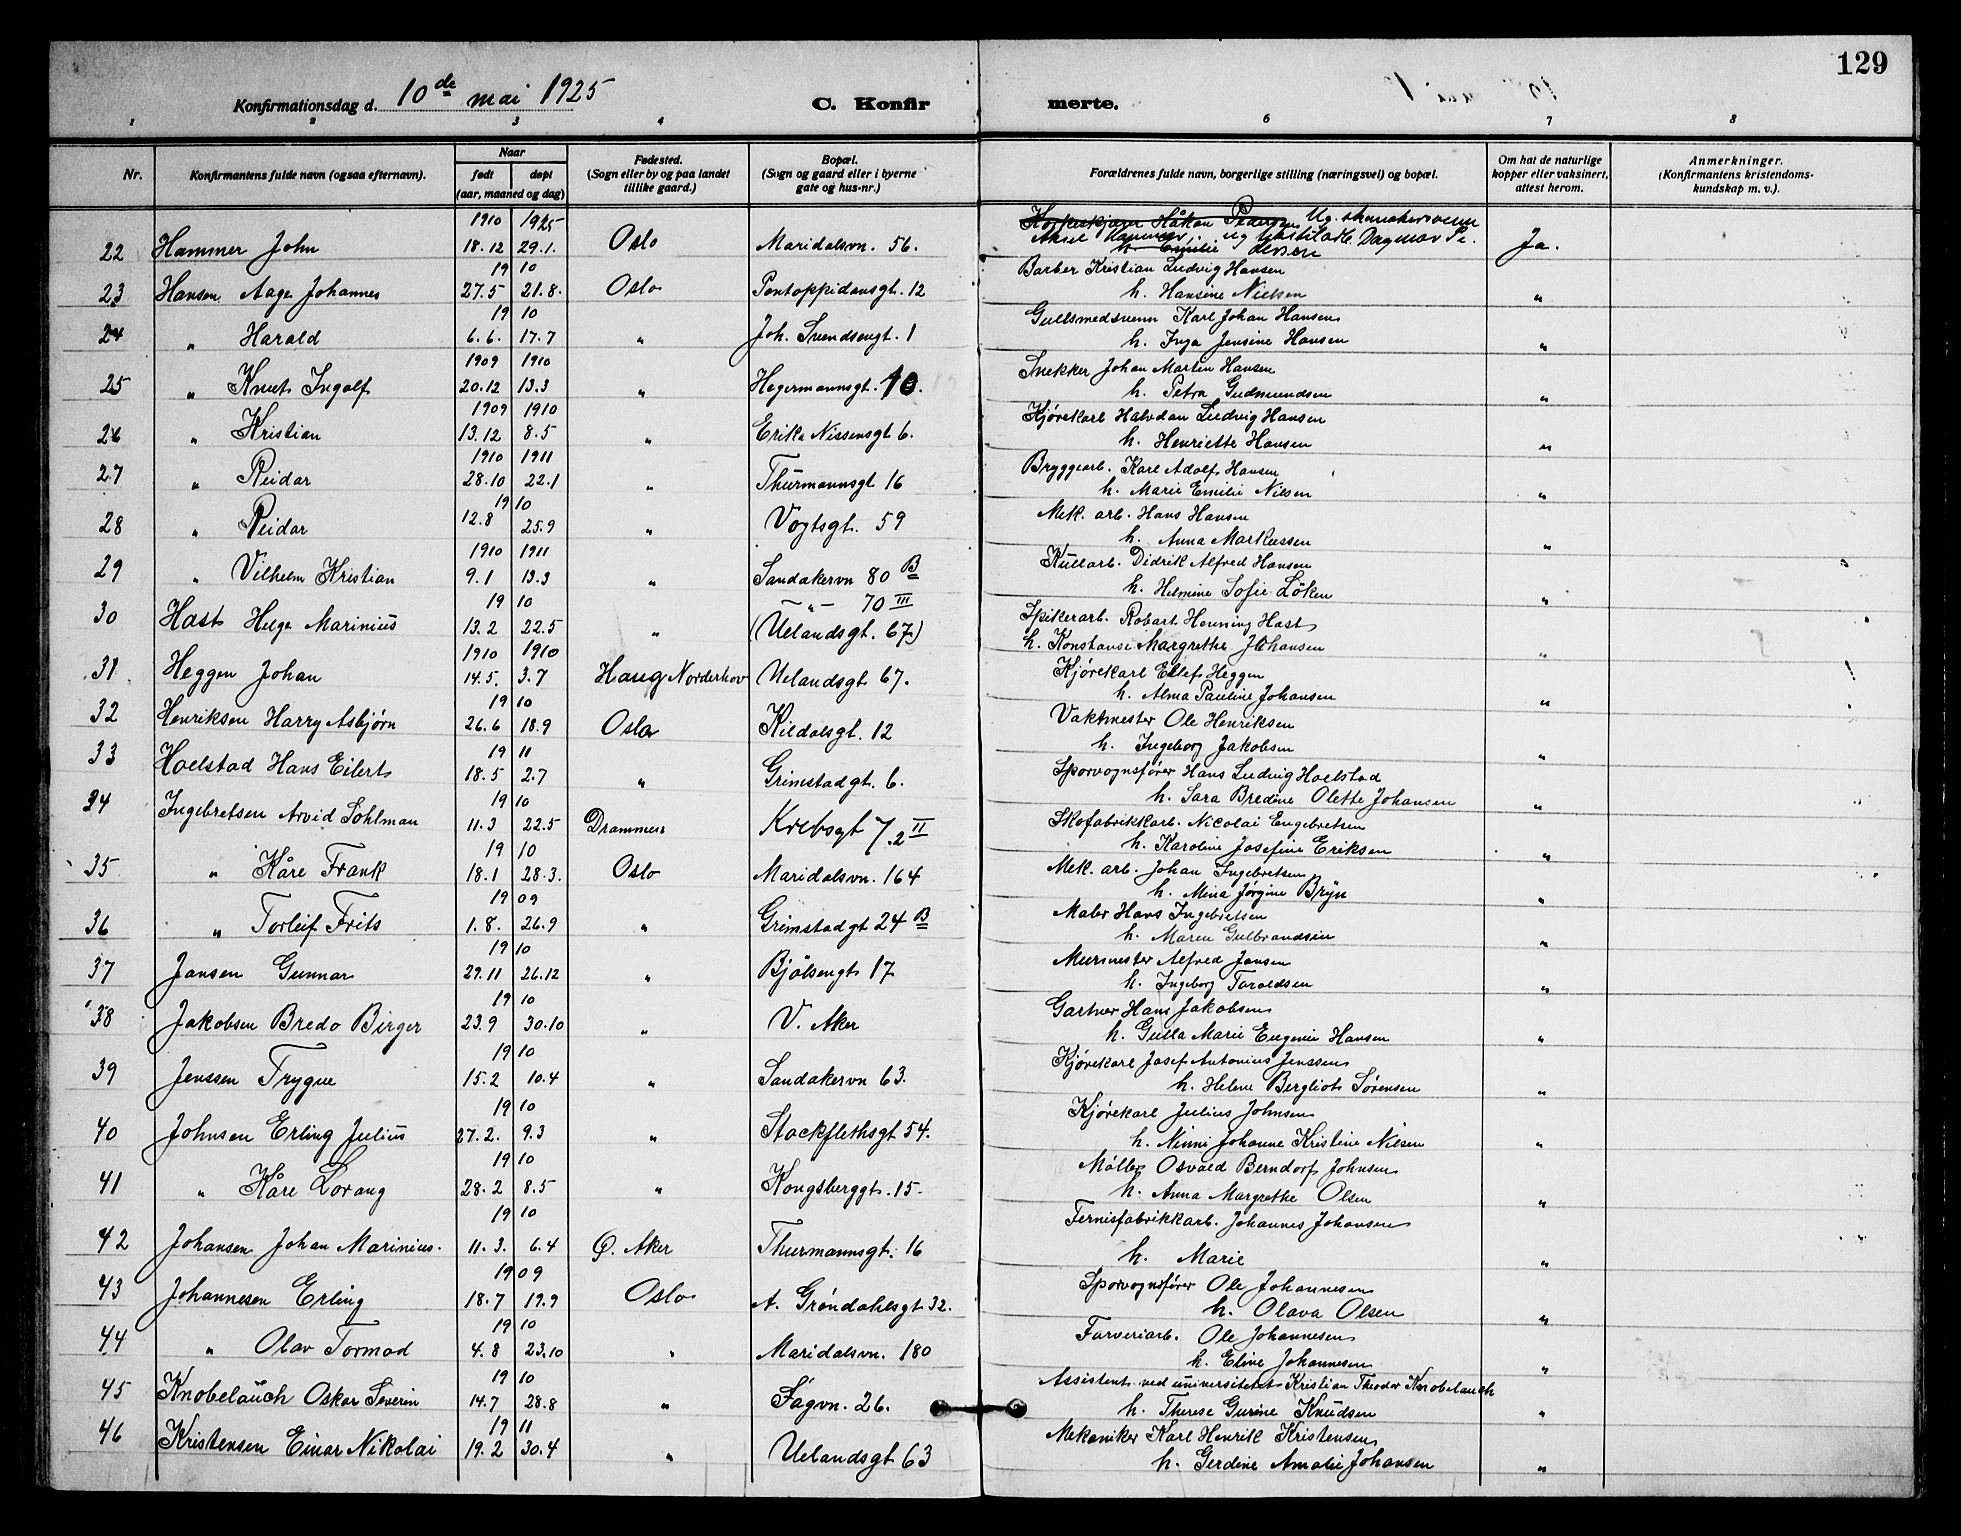 129
Konfirmationsdag d. 10de mai 1925 C. Konfirmerte.
1 2 3 4 6 7 8
Nr. Konfirmantens fulde navn (ogsaa efternavn). Naar født døpt (aar, maaned og dag) Fødested. (Sogn eller by og paa landet tillike gaard.) Bopæl. (Sogn og gaard eller i byerne gate og hus-nr.) Forældrenes fulde navn, borgerlige stilling (næringsvei) og bopæl. Om hat de naturlige kopper eller vaksinert, attest herom. Anmerkninger. (Konfirmantens kristendomskundskap m. v.).
1910 1925 Håkon Ug. skomakersvenn
22 Hammer John 18.12 29.1. Oslo Maridalsvn. 56. Aksel Hammer, ug Dagmar Ja.
h. Emilie
19 10 Barber Kristian Ludvig Hansen
23 Hansen Aage Johannes 27.5 21.8. Oslo Pontoppidansgt. 12 h. Hansine Nielsen "
19 10 Gullsmedsvenn Karl Johan Hansen
24 " Harald 6.6. 17.7 " Joh. Svendsensgt. 1 h. Inga Jensine Hansen "
1909 1910 Snekker Johan Martin Hansen
25 " Knut Ingolf 20.12 13.3 " Hegermannsgt. 10. h. Petra Gudmundsen "
1909 1910 Kjørekarl Halvdan Ludvig Hansen
26 " Kristian 13.12 8.5 " Erika Nissensgt 6. h. Henriette Hansen "
1910 1911 Bryggearb. Karl Adolf Hansen
27 " Reidar 28.10 22.1 " Thurmannsgt 16 h. Marie Emilie Nilsen "
19 10 Mek. arb. Hans Hansen
28 " Reidar 12.8 25.9 " Vogtsgt. 59 h. Anna Markussen "
1910 1911 Kullarb. Didrik Alfred Hansen
29 " Vilhelm Kristian 9.1 13.3 " Sandakervn 80 B h. Helmine Sofie Löken "
19 10 —"— 70 III Spikerarb. Robart Henning Hast
30 Hast Helge Marinius 13.2 22.5 " (Uelandsgt. 67) h. Konstanse Margrethe Johansen "
1910 1910 Kjørekarl Ellef Heggen
31 Heggen Johan 14.5. 3.7 Haug Norderhov Uelandsgt 67. h. Alma Pauline Johansen "
19 10 Vaktmester Ole Henriksen
32 Henriksen Harry Asbjørn 26.6 18.9 Oslo Kildalsgt. 12 h. Ingeborg Jakobsen "
19 11 Sporvognsfører Hans Ludvig Hoelstad
33 Hoelstad Hans Eilert 18.5 2.7 " Grimstadgt. 6. h. Sara Bredine Olette Johansen "
19 10 Skofabrikkarb. Nicolai Engebretsen
34 Ingebretsen Arvid Sohlman 11.3 22.5 Drammen Krebsgt 7.2 II h. Karoline Josefine Eriksen "
19 10 Mek. arb. Johan Ingebretsen
35 " Kåre Frank 18.1 28.3. Oslo Maridalsvn. 164 h. Mina Jørgine Bryn "
19 09 Maler Hans Ingebretsen
36 " Torleif Frits 1.8. 26.9 " Grimstadgt 24 B h. Maren Gulbrandsen "
19 10 Murmester Alfred Jansen
37 Jansen Gunnar 29.11 26.12 " Bjölsengt 17 h. Ingeborg Taraldsen "
19 10 Gartner Hans Jakobsen
38 Jakobsen Bredo Birger 23.9 30.10 " V. Aker h. Gulla Marie Eugenie Hansen "
19 10 Kjørekarl Josef Antonius Jenssen
39 Jenssen Trygve 15.2 10.4 " Sandakervn 63. h. Helene Bergliot Sørensen "
19 10 Kjørekarl Julius Johnsen
40 Johnsen Erling Julius 27.2. 9.3 " Stockflethsgt 54. h. Ninni Johanne Kristine Nilsen "
19 10 Møller Osvald Berndorf Johnsen
41 " Kåre Lorang 28.2 8.5 " Kongsberggt. 15. h. Anna Margrethe Olsen "
19 10 Fernisfabrikkarb. Johannes Johansen
42 Johansen Johan Marinius. 11.3. 6.4 Ø. Aker Thurmannsgt. 16 h. Marie "
19 09 Sporvognsfører Ole Johannesen
43 Johannesen Erling 18.7 19.9 Oslo A. Grøndahlsgt 32. h. Olava Olsen "
19 10 Farveriarb. Ole Johannesen
44 " Olav Tormod 4.8 23.10 " Maridalsvn. 180 h. Eline Johannesen "
19 10 Assistent ved universitetet Kristian Theodor Knobelauch
45 Knobelauch Oskar Severin 14.7 28.8 " Fagvn. 26. h. Therese Gurine Knudsen "
19 11 Mekaniker Karl Henrik Kristensen
46 Kristensen Einar Nikolai 19.2 30.4 " Uelandsgt 63 h. Gerdine Amalie Johansen "